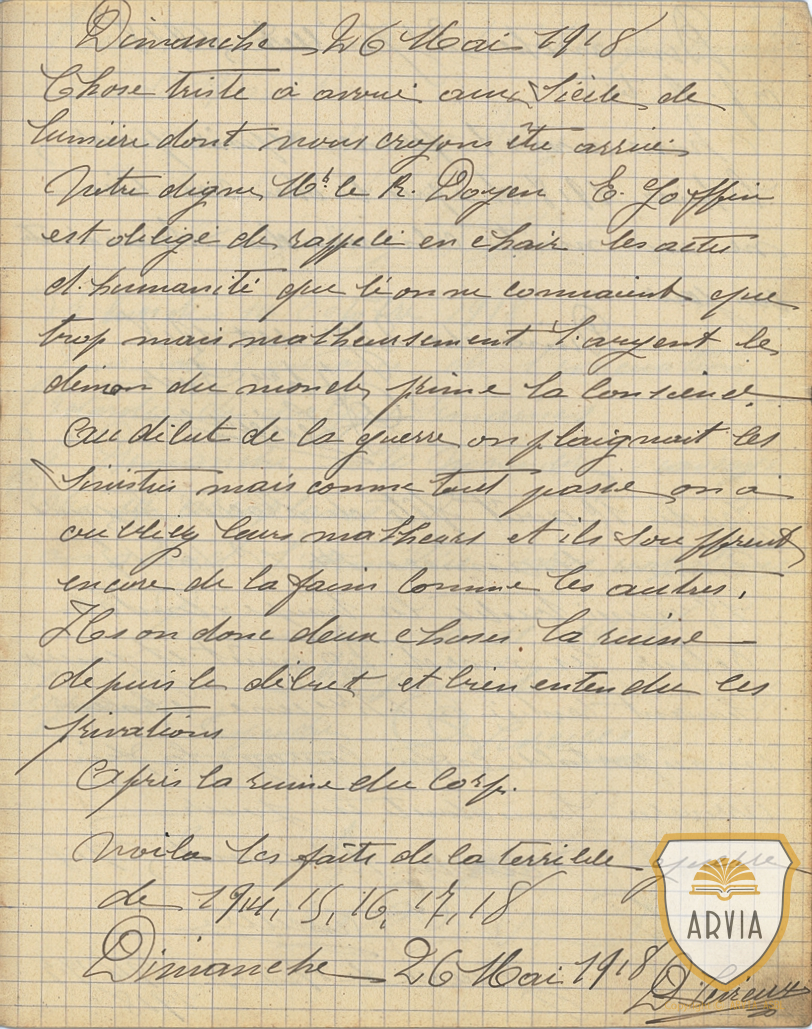 Dimanche 26 Mai 1918
Chose triste à arrivé aux Siècle de
lumière dont nous croyons être arrivé
Notre digne Mr le R. Doyen E. Goffin
est obligé de rappelé en chair les actes
d'humanité que l'on ne connaient que
trop mais malheursement l'argent le
démon du monde prime la Conscience.
Au début de la guerre on plaignait les
Sinistrés mais comme tout passe on a
oublier leurs malheurs et ils souffrent
encore de la faim comme les autres.
Ils on donc deux choses la ruine
depuis le début et bien entendu les
privations
Après la ruine du Corp.
Voila les faits de la terrible guerre
de 1914, 15, 16, 17, 18
Dimanche 26 Mai 1918
ARVIA